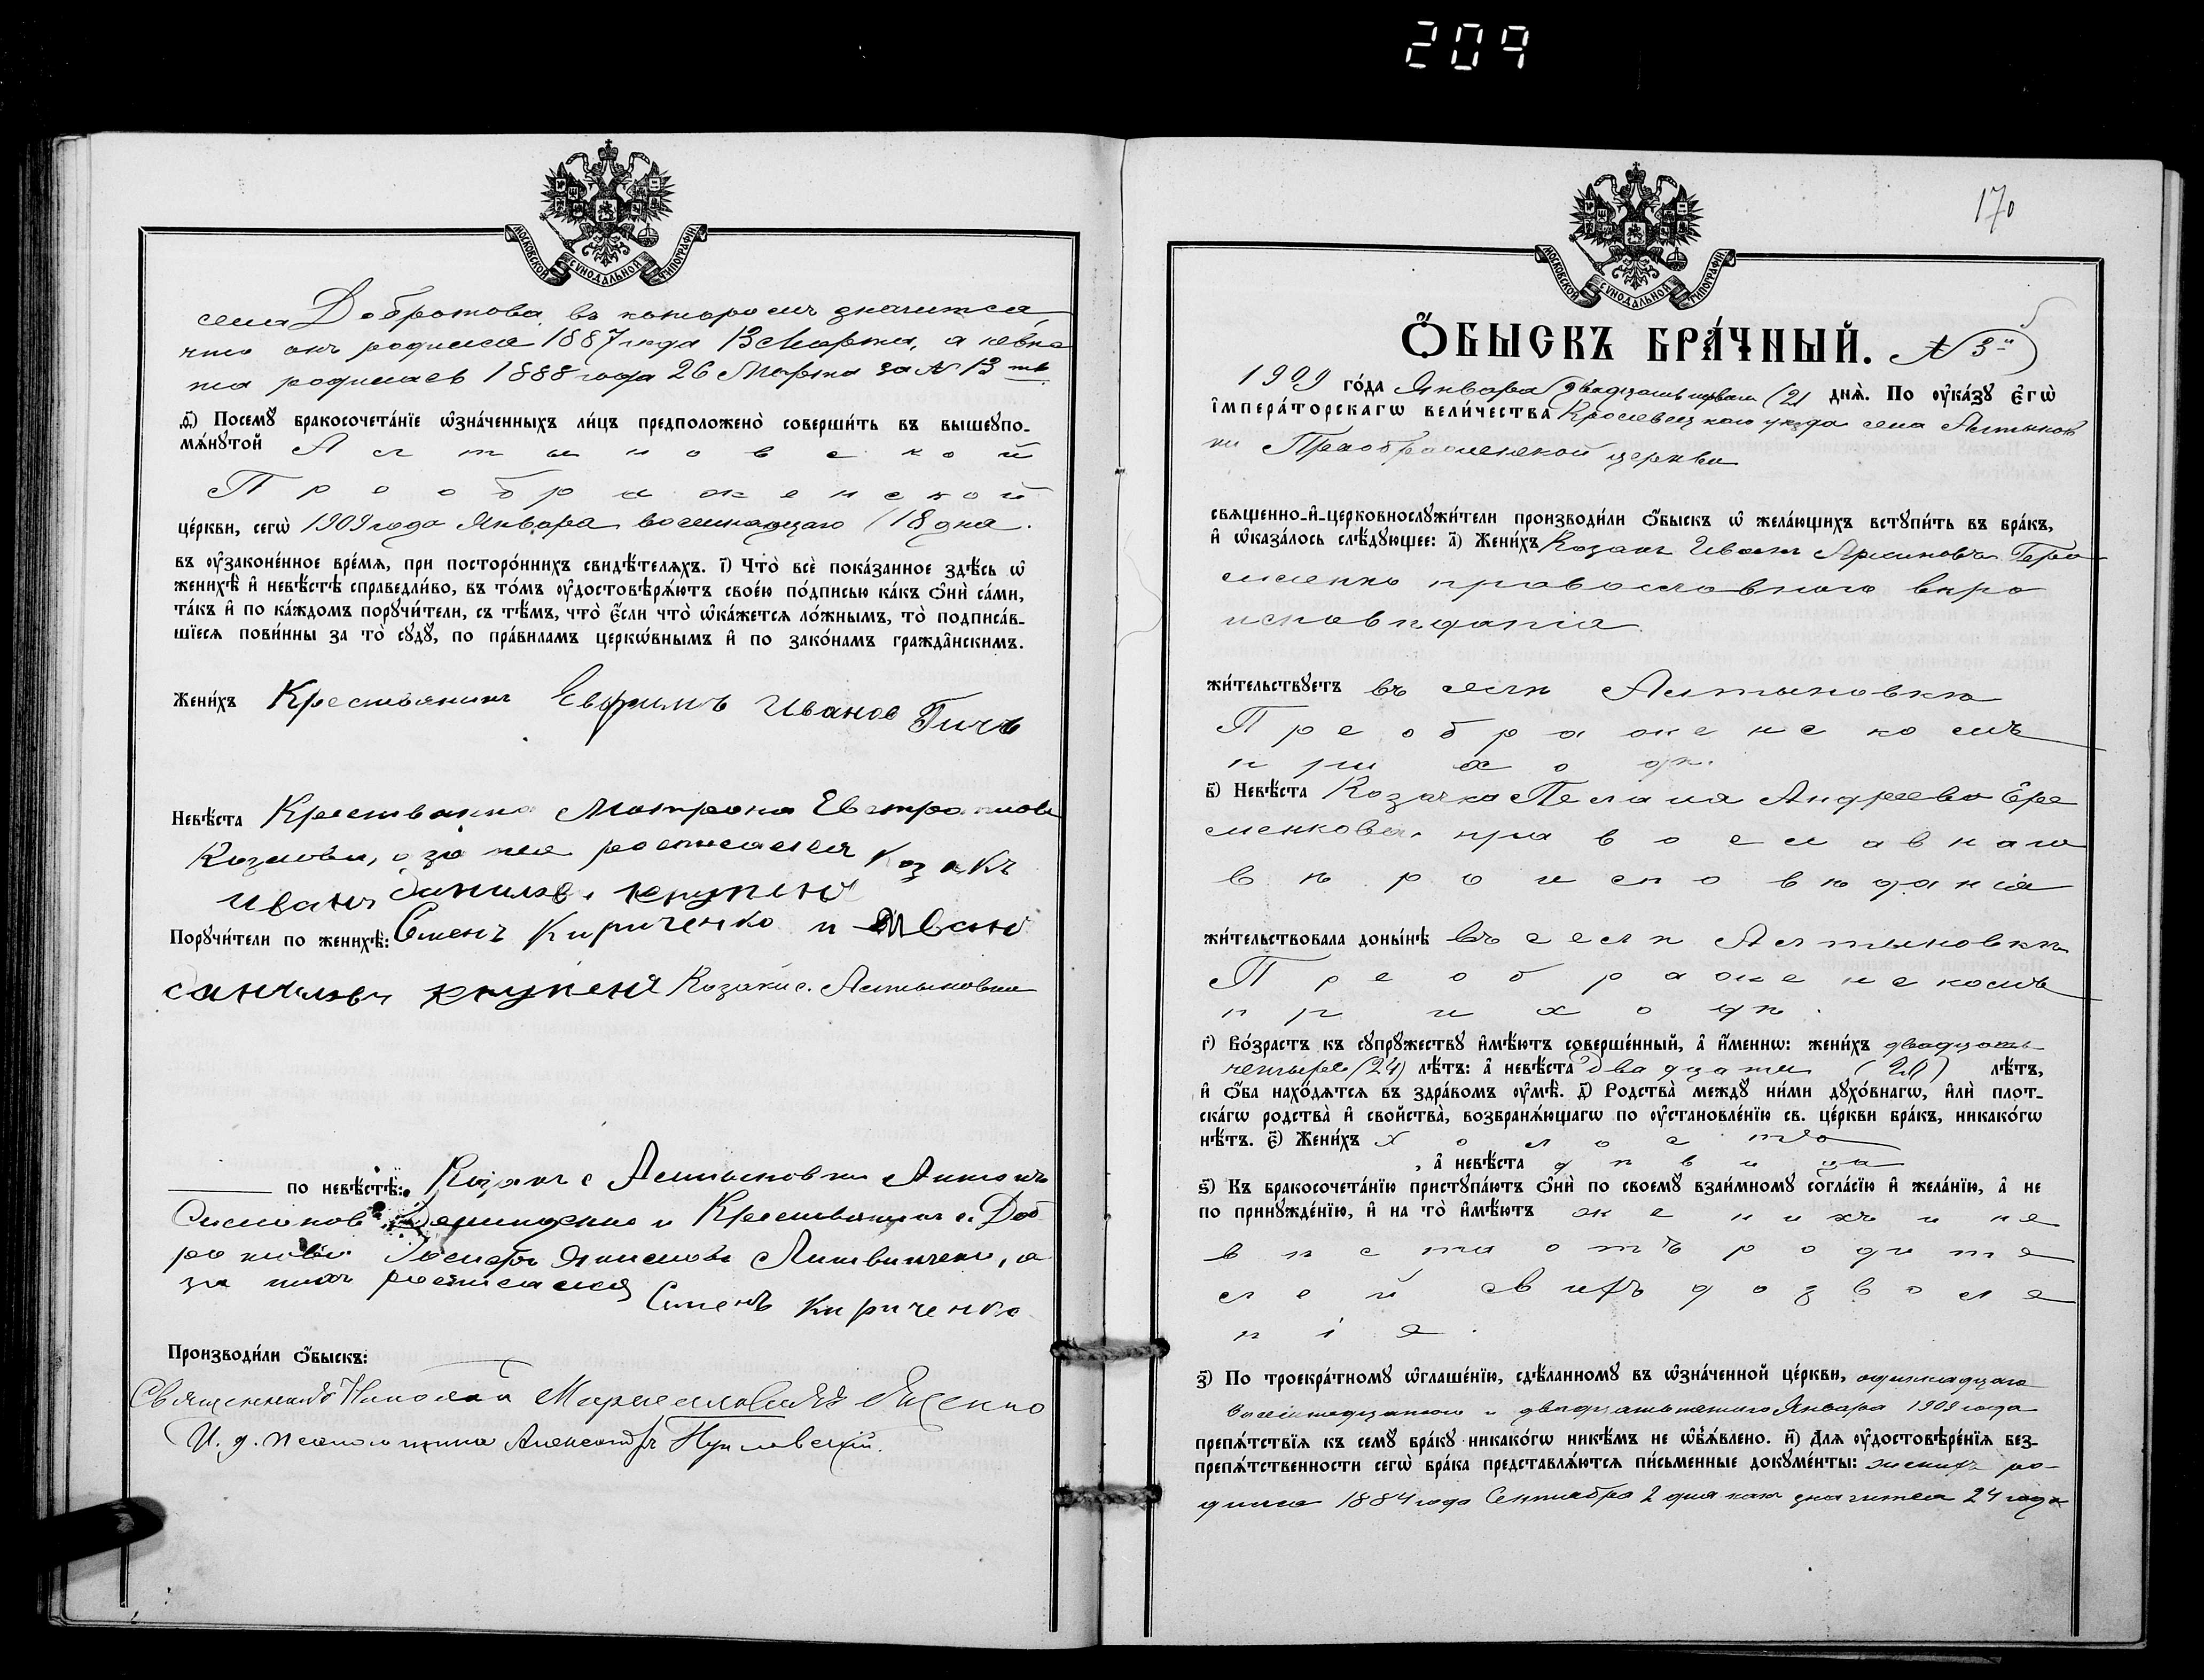 209
МОСКОВСКОЙ СѴНОДАЛЬНОЙ ТИПОГРАФІИ
села Добротова, въ которомъ значится,
что онъ родился 1887 года 13 Марта, а невѣс
та родилась 1888 года 26 Марта за № 13 мъ
д҃) Посемꙋ бракосочета́нїе ѡ҆зна́ченныхъ ли́цъ предположено̀ соверши́ть въ вышеꙋпо-
мѧ́нꙋтой Алтыновской
Преображенской
це́ркви, сегѡ̀ 1909 года Января восемнадцаго (18 дня.
въ ᲂу҆законе́нное вре́мѧ, при посторо́ннихъ свидѣ́телѧхъ. і҃) Что̀ всѐ пока́занное здѣ́сь ѡ҆
женихѣ̀ и҆ невѣ́стѣ справедли́во, въ то́мъ ᲂу҆достовѣрѧ́ютъ свое́ю по́дписью ка́къ ѻ҆нѝ са́ми,
та́къ и҆ по ка́ждомъ порꙋчи́тели, съ тѣ́мъ, что̀ є҆́сли что̀ ѡ҆ка́жетсѧ ло́жнымъ, то̀ подписа́в-
шїесѧ пови́нны за то̀ сꙋдꙋ̀, по пра́виламъ церко́внымъ и҆ по зако́намъ гражда̂нскимъ.
Жени́хъ Крестьянинъ Евфимъ Иванов Гичъ
Невѣ́ста Крестьянка Матрона Евстратиова
Козлова, а за нея росписался козакъ
иванъ данилов. крупеня
Порꙋчи́тели по женихѣ̀: Семенъ Кириченко и Иван
данилов крупеня Козаки с. Алтыновки
по невѣ́стѣ: Козакъ с Алтыновки Антонъ
Симонов и Крестьянинъ с. Доб
ротова Іосифъ Якимовъ Литвиненко, а
за нихъ росписался Семенъ Кириченко
Производи́ли ѻ҆́быскъ:
Священникъ Николай
И. д. псаломщика Александръ
170
МОСКОВСКОЙ СѴНОДАЛЬНОЙ ТИПОГРАФІИ
Ѻ҆́БЫСКЪ БРА́ЧНЫЙ. № 3й
1909 го́да Января двадцать перваго (21 днѧ̀. По ᲂу҆ка́зꙋ є҆гѡ̀
і҆мпера́торскагѡ вели́чества Кролевецкаго уѣзда села Алтынов
ки Преображенской церкви
свѧщенно-и҆-церковнослꙋжи́тели производи́ли ѻ҆́быскъ ѡ҆ жела́ющихъ встꙋпи́ть въ бра́къ,
и҆ ѡ҆каза́лось слѣ́дꙋющее: а҃) Жени́хъ Козакъ Иванъ Гера
сименко православнаго вѣро
исповѣданія
жи́тельствꙋетъ въ селѣ Алтыновкѣ
Преображенскомъ
приходѣ.
в҃) Невѣ́ста Козачка Пелагия Андреева Ере
менкова православнаго
вѣроисповѣданія
жи́тельствовала доны́нѣ въ селѣ Алтыновкѣ
Преображенскомъ
приходѣ.
г҃) Во́зрастъ къ сꙋпрꙋжествꙋ и҆мѣ́ютъ соверше́нный, а҆ и҆́меннѡ: жени́хъ двадцать
четыре (24) лѣ́тъ: а҆ невѣ́ста двадцати (20) лѣ́тъ,
и҆ ѻ҆́ба нахо́дѧтсѧ въ здра́вомъ ᲂу҆мѣ̀. д҃) Родства̀ междꙋ̀ ни́ми дꙋхо́внагѡ, и҆лѝ плот-
ска́гѡ родства̀ и҆ свойства̀, возбранѧ́ющагѡ по ᲂу҆становле́нїю св. це́ркви бра́къ, никако́гѡ
нѣ́тъ. є҃) Жени́хъ холостъ
, а҆ невѣ́ста дѣвица
ѕ҃) Къ бракосочета́нїю пристꙋпа́ютъ ѻ҆нѝ по своемꙋ̀ взаи́мномꙋ согла́сїю и҆ жела́нїю, а҆ не
по принꙋжде́нїю, и҆ на то̀ и҆мѣ́ютъ женихъ и не
вѣста отъ родите
лей своихъ дозволе
ніе.
з҃) По троекра́тномꙋ ѡ҆глаше́нїю, сдѣ́ланномꙋ въ ѡ҆зна́ченной це́ркви, одинадцаго
восемнадцатаго и Января 1909 года
препѧ́тствїѧ къ семꙋ̀ бра́кꙋ никако́гѡ никѣ́мъ не ѡ҆б̾ѧ́влено. и҃) Длѧ ᲂу҆достовѣре́нїѧ без-
препѧ́тственности сегѡ̀ бра́ка представлѧ́ютсѧ пи́сьменные докꙋме́нты: женихъ ро-
дился 1884 года Сентября 2 дня какъ значится 24 года